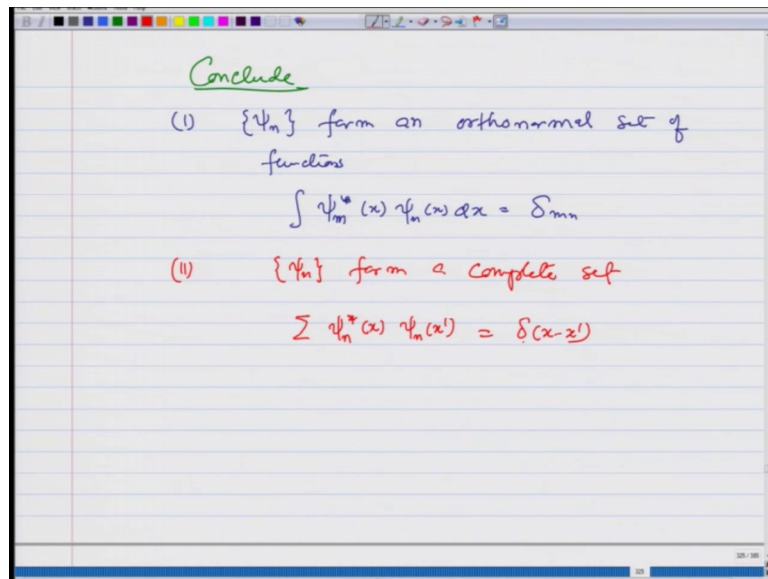 Conclude
(I) {ψn} form an orthonormal set of
functions
∫ ψm*(x) ψn(x) dx = δmn
(II) {ψn} form a complete set
Σ ψn*(x) ψn(x') = δ(x-x')
325 / 385
325